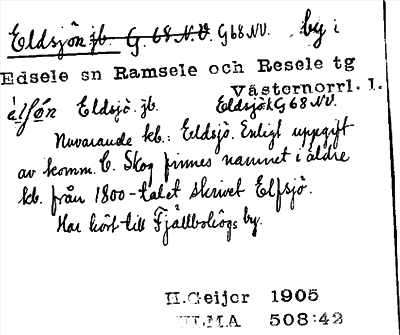 Eldsjön jb. G. 68 N.V. G 68 NV. by i
Edsele sn Ramsele och Resele tg
Västernorrl. l.
Eldsjö. jb. Eldsjök G 68 NV.
Nuvarande kb.: Eldsjö. Enligt uppgift
av komm. C. Skog finnes namnet i äldre
kb. från 1800-talet skrivet Elfsjö.
Har hört till Fjällbohögs by.
H.Geijer 1905
ULMA 508:42